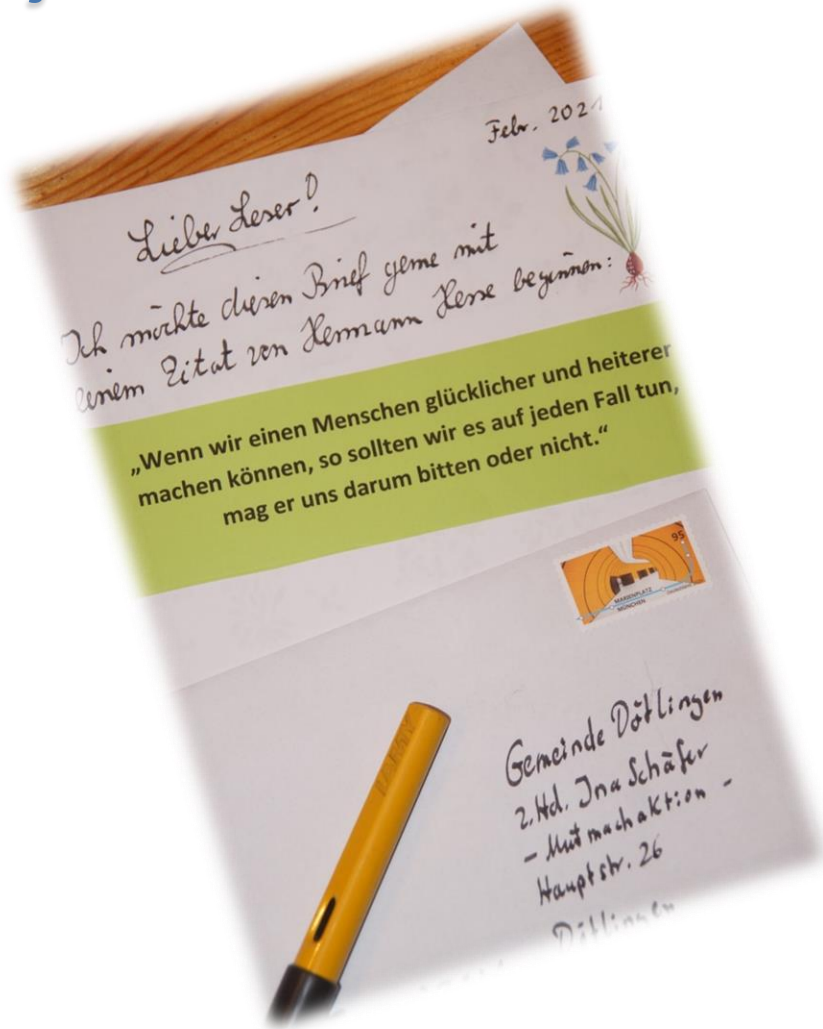 Febr. 2021
Lieber Leser!
Ich möchte diesen Brief gerne mit
einem Zitat von Hermann Hesse beginnen:
„Wenn wir einen Menschen glücklicher und heiterer
machen können, so sollten wir es auf jeden Fall tun,
mag er uns darum bitten oder nicht.“
95
MARIENPLATZ
MÜNCHEN
Gemeinde Dötlingen
z. Hd. Ina Schäfer
- Mutmachaktion -
Hauptstr. 26
Dötlingen
LAMY